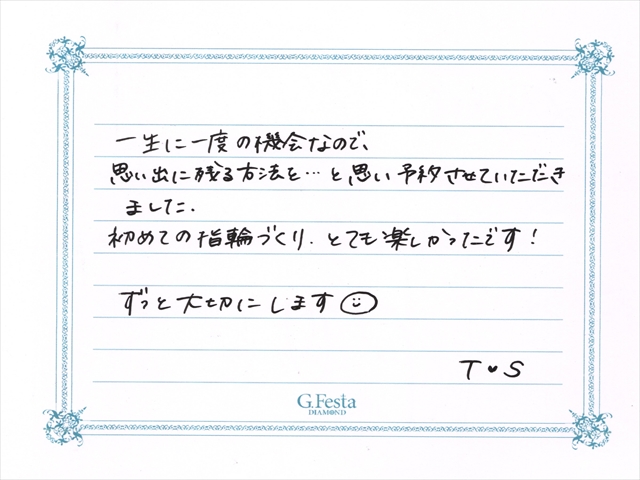 一生に一度の機会なので、
思い出に残る方法を…と思い予約させていただき
ました.
初めての指輪づくり、とても楽しかったです!
ずっと大切にします☺
T♥S
G.Festa
DIAMOND